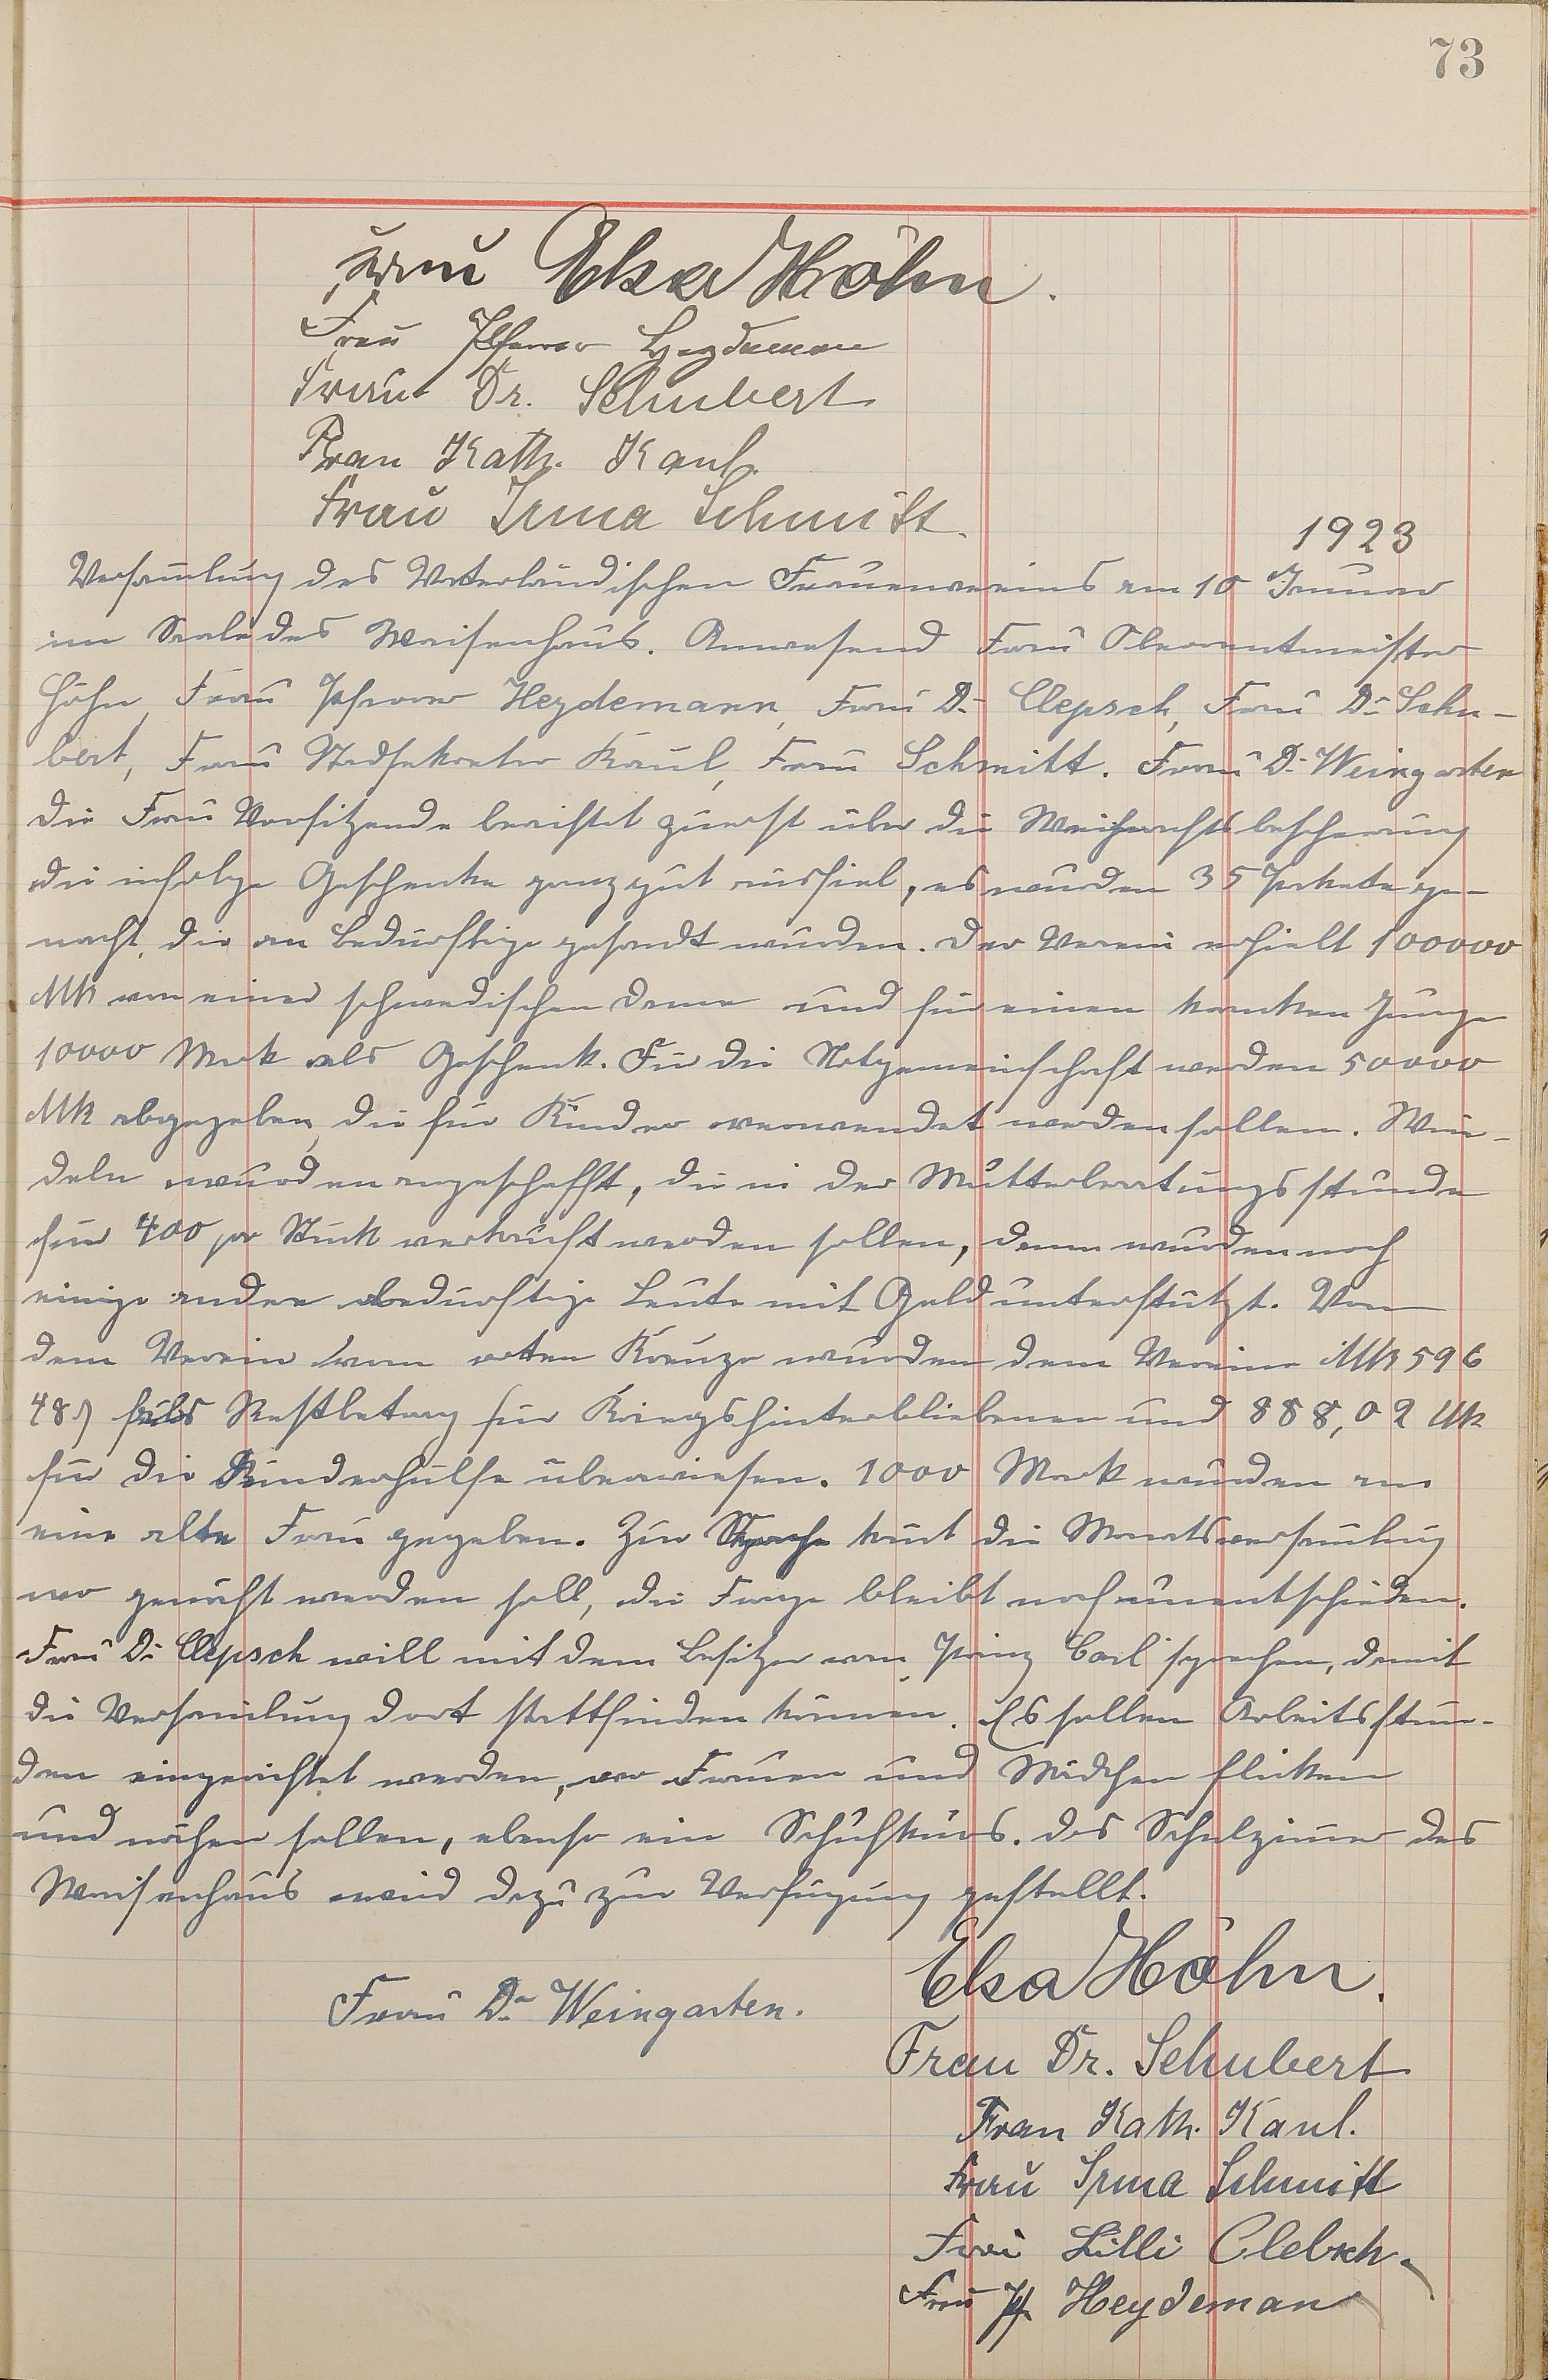 73
Frau Elsa Höhn.
Frau Pfarrer Heydemann
Frau Dr. Schubert
Frau Kath. Kaul.
Frau Irma Schmitt.
1923
Versam̄lung des Vaterländischen Frauenvereins am 10 Januar
im Saale des Waisenhaus. Anwesend Frau Oberamtmeister
Höhn, Frau Pfarrer Heydemann, Frau Dr Clepsch, Frau Dr Schu-
bert, Frau Stadtsekretär Kaul, Frau Schmitt. Frau Dr Weingarten
Die Frau Vorsitzende berichtet zuerst über die Weihnachtsbescheerung
die infolge Geschenke ganz gut ausfiel, es wurden 35 Pakete ge-
macht, die an Bedürftige gesandt wurden. Der Verein erhielt 100000
Mk von einer schwedischen Dame und für einen kranken Junge
10000 Mark als Geschenk. Für die Notgemeinschaft werden 50000
Mk abgegeben, die für Kinder verwendet werden sollen. Win-
deln wurden angeschafft, die in der Mutterberatungsstunde
für 400 pr Stück verkauft werden sollen, dann wurden noch
einige andere bedürftige Leute mit Geld unterstützt. Von
dem Verein vom roten Kreuze wurden dem Vereine Mk 596
48 als Restbetrag für Kriegshinterbliebenen und 888,02 Mk
für die Kinderhülfe überwiesen. 1000 Mark wurden an
eine alte Frau gegeben. Zur Sprache kam̄t die Monatsversam̄lung
wo genäht werden soll, die Frage bleibt noch unentschieden.
Frau Dr Clepsch will mit dem Besitzer vom Prinz Carl sprechen, damit
die Versam̄lung dort stattfinden können. Es sollen Arbeitsstun-
den eingerichtet werden, wo Frauen und Mädchen flicken
und nähen sollen, ebenso ein Schuhkurs. Das Schulzim̄er des
Waisenhaus wird dazu zur Verfügung gestellt.
Elsa Höhn.
Frau Dr Weingarten.
Frau Dr. Schubert
Frau Kath. Kaul.
Frau Irma Schmitt
Frau Lilli Clebsch.
Frau Pf. Heydemann